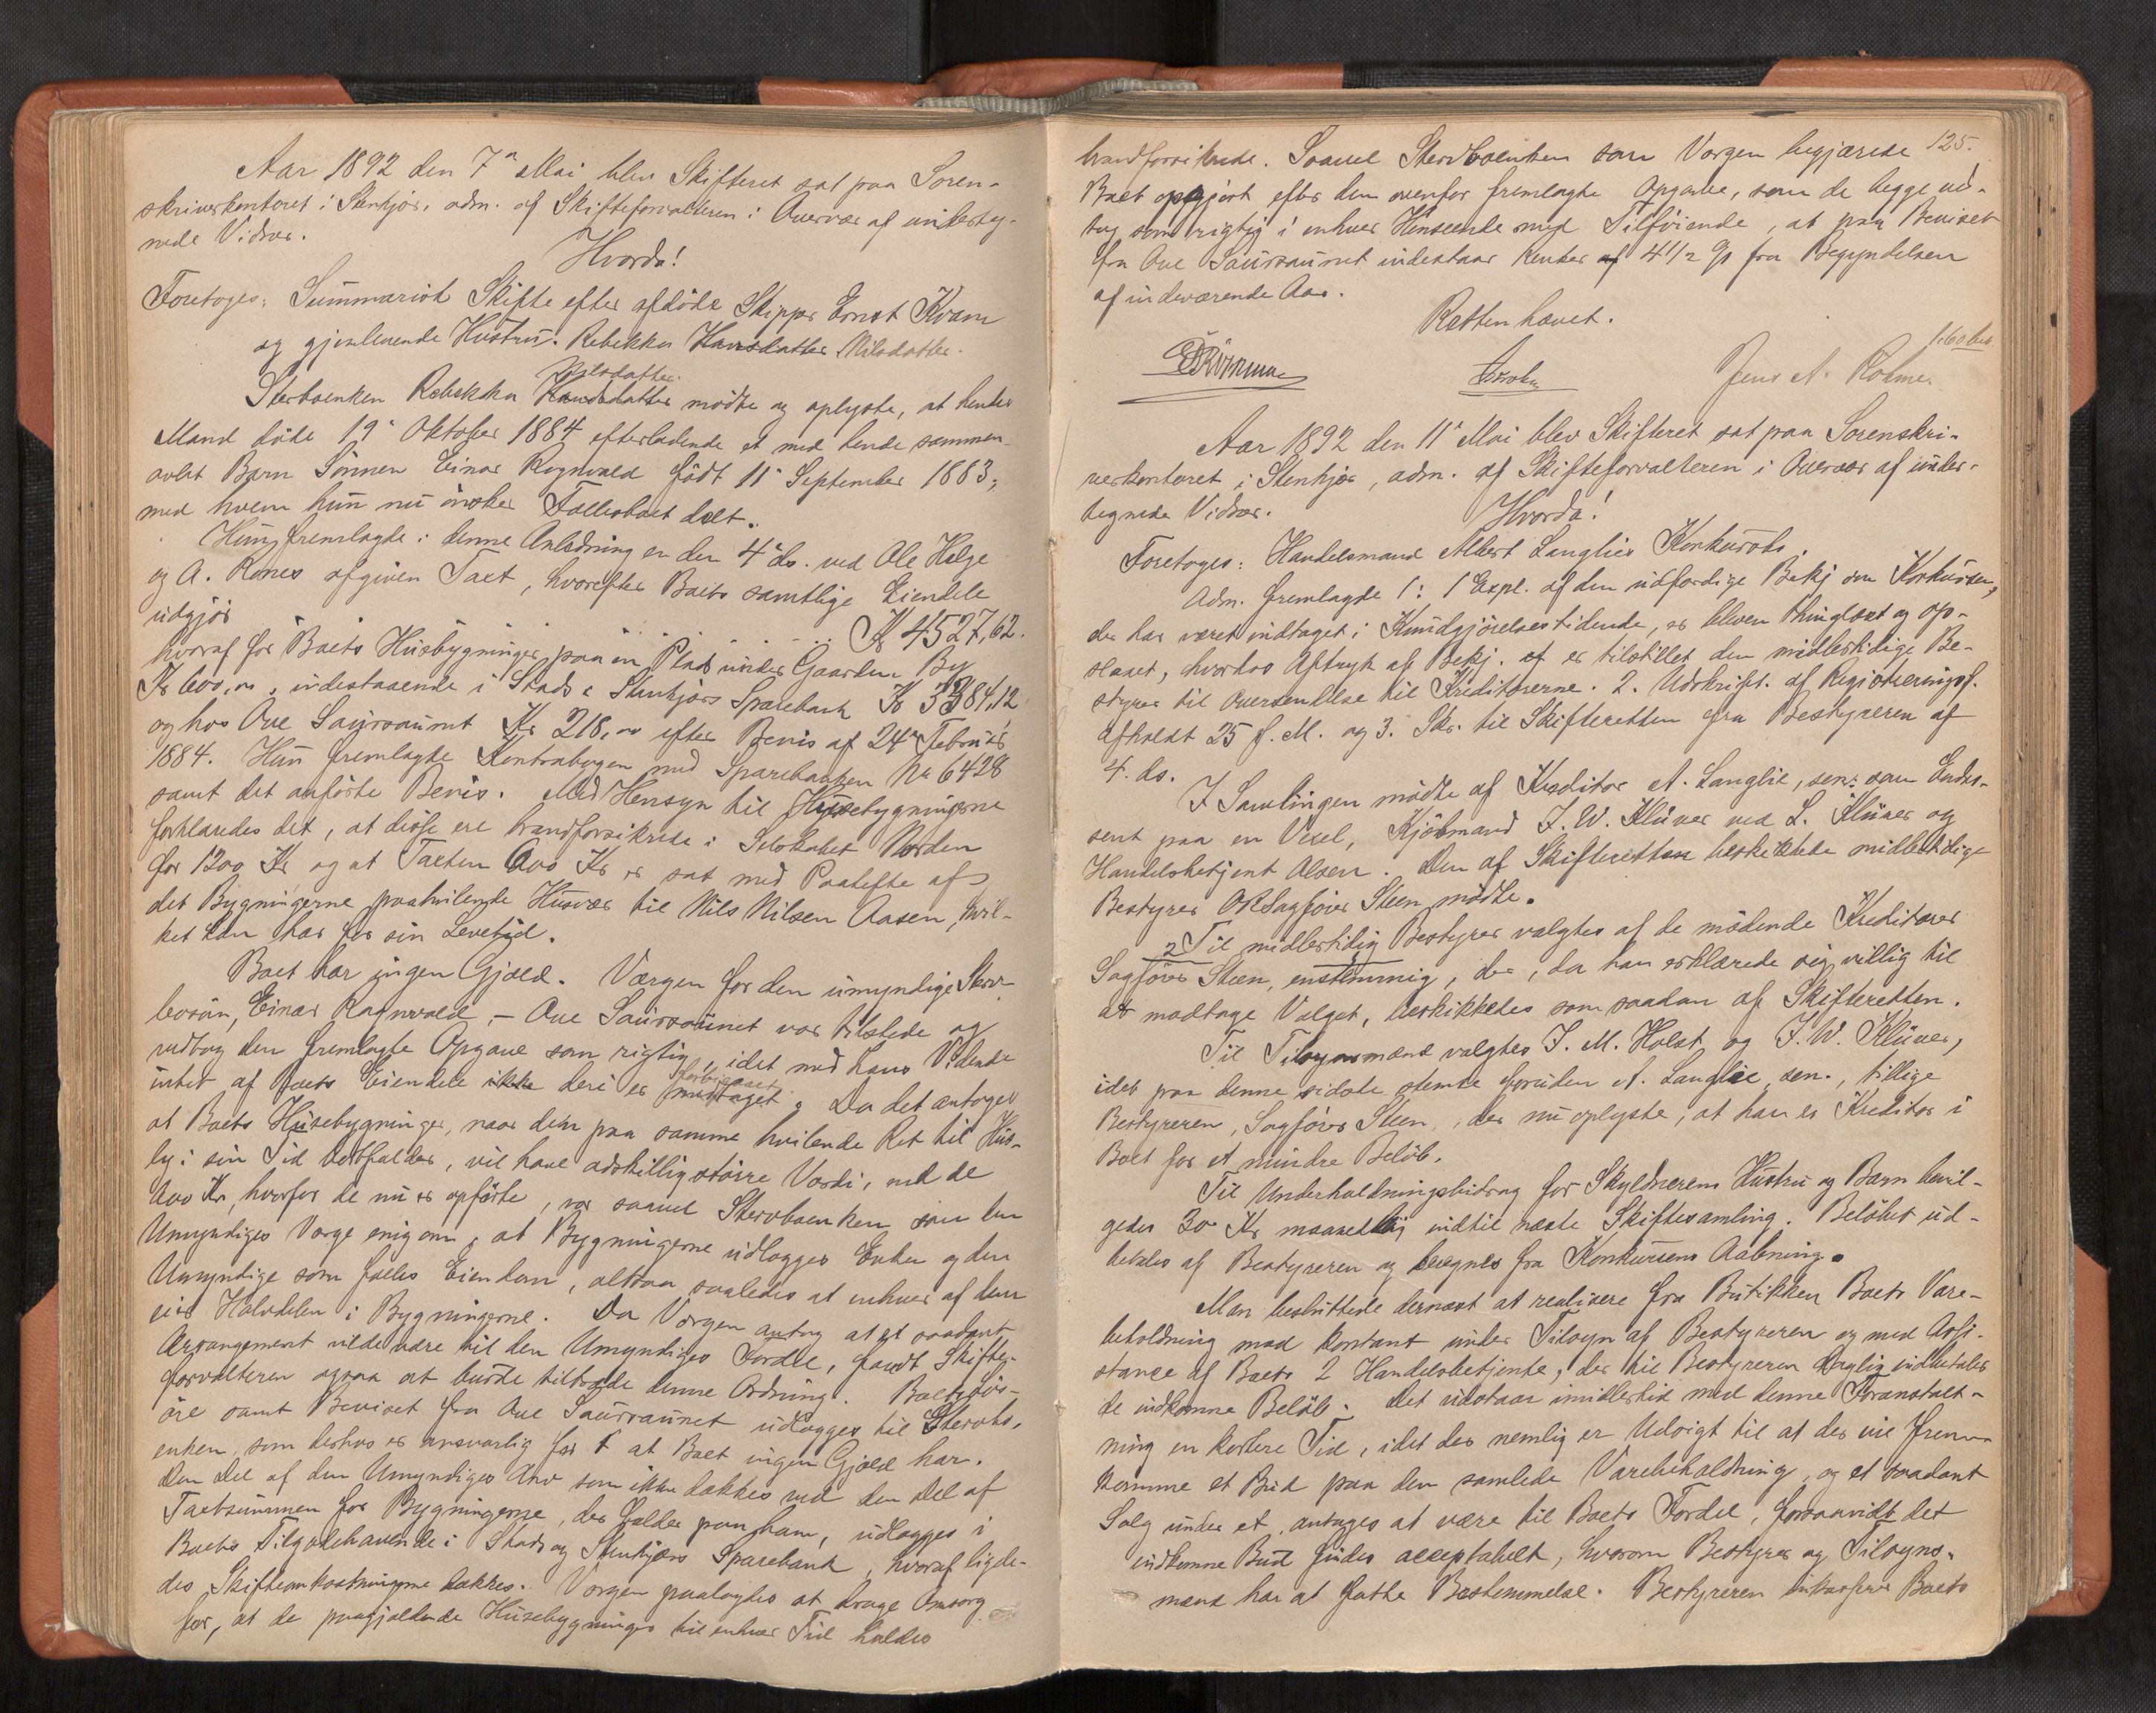 Aar 1892 den 7de Mai blev Skifteret sat paa Soren-
skriverkontoret i Stenkjær, adm. af Skifteforvalteren i Overvær af underteg-
nede Vidner.
Hvorda!
Foretoges: Summarisk Skifte efter afdöde Skipper Ernst Kvam
og gjenlevende Hustru. Rebekka Hansdatter Nilsdatter.
Nilsdatter
Sterboenken Rebekka Hansdatter mödte og oplyste, at hendes
Mand döde 19de Oktober 1884 efterladende et med hende sammen-
avlet Barn Sönnen Einar Ragnvald födt 11te September 1883,
med hvem hun nu önsker Fællesboet delt.
Hun fremlagde i denne Anledning en den 4de ds. ved Ole Helge
og A. Rones afgiven Taxt, hvorefter Boets samtlige Eiendele
udgjör Kr 4527,62.
hvoraf for Boets Husbygninger paa en Plads under Gaarden By
Kr 600,00, indestaaende i Stods & Stenkjærs Sparebank Kr 3384,12
og hos Ove Saursaunet Kr 218,00 efter Bevis af 24de Februar
1884. Hun fremlagde Kontrabogen med Sparebanken No 6428
samt det anförte Bevis. Med Hensyn til Husebygningerne
forklaredes det, at disse ere brandforsikrede i Selskabet Norden
for 1200 Kr og at Taxten 600 Kr er sat med Paahefte af
det Bygningerne paahvilende Husvær til Nils Nilsen Aasen, hvil-
ket han har for sin Levetid.
Boet har ingen Gjæld. Værgen for den umyndige Sterv-
bosön, Einar Ragnvald, - Ove Saursaunet var tilstede og
vedtog den fremlagte Opgave som rigtig, idet med hans Vidende
intet af Boets Eiendele ikke deri er forbigaaet medtaget. Da det antoges
at Boets Husebygninger, naar den paa samme hvilende Ret til Hus-
ly i sin Tid bortfalder, vil have adskillig större Værdi, end de
600 Kr, hvorfor de nu er opförte, var saavel Stervboenken som den
Umyndiges Værge enig om, at Bygningerne udlægges Enken og den
Umyndige som fælles Eiendom, altsaa saaledes at enhver af dem
eier Halvdelen i Bygningerne. Da Værgen antog at et saadant
Arrangement vilde være til den Umyndiges Fordel, fandt Skifte-
forvalteren ogsaa at burde tiltræde denne Ordning. Boets Lös-
öre samt Beviset fra Ove Saursaunet udlægges til Stervbo-
enken, som derhos er ansvarlig for at Boet ingen Gjæld har.
Den Del af den Umyndiges Arv som ikke dækkes ved den Del af
Taxtsummen for Bygningerne, der falder paa ham, udlægges i
Boets Tilgodehavende i Stods og Stenkjærs Sparebank, hvoraf ligele-
des Skifteomkostningerne dækkes. Værgen paalagdes at drage Omsorg
for, at de paagjældende Husebygninger til enhver Tid holdes
125.
brandforsikrede. Saavel Stervboenken som Værgen begjærede
Boet opgjort efter den ovenfor fremlagte Opgave, som de begge ved-
tog som rigtig i enhver Henseende med Tilföiende, at paa Beviset
fra Ove Saursaunet indestaar Renter af 4 1/2 % fra Begyndelsen
af indeværende Aar.
Retten hævet.
Jens A. Rohme.
Aar 1892 den 11te Mai blev Skifteret sat paa Sorenskri-
verkontoret i Stenkjær, adm. af Skifteforvalteren i Overvær af under-
tegnede Vidner.
Hvorda!
Foretoges: Handelsmand Albert Langlies Konkursbo.
Adm. fremlagde 1: 1 Expl. af den udfærdige Bekj om Konkursen,
der har været indtaget i Kundgjörelsestidende, er bleven thinglæst og op-
slaaet, hvorhos Aftryk af Bekj. er tilstillet den midlertidige Be-
styrer til Oversendelse til Kreditorerne. 2. Udskrift af Registreringsf.
afholdt 25 f. M. og 3. Skr. til Skifteretten fra Bestyreren af
4. ds.
I Samlingen mödte af Kreditor A. Langlie, sen: som Endos-
sent paa en Vexel, Kjöbmand J. W. Klüver ved L. Klüver og
Handelsbetjent Alsen. Den af Skifteretten beskikkede midlertidige
Bestyrer ORSagförer Steen mödte.
Til midlertidig Bestyrer valgtes af de mödende Kreditorer
Sagförer Steen, enstemmig, der, da han erklærede sig villig til
at modtage Valget, beskikkedes som saadan af Skifteretten.
Til Tilsynsmænd valgtes J. M. Holst og J. W. Klüver,
idet paa denne sidste stemte foruden A. Langlie sen., tillige
Bestyreren, Sagförer Steen, der nu oplyste, at han er Kreditor i
Boet for et mindre Belöb.
Til Underholdningsbidrag for Skyldnerens Hustru og Barn bevil-
gedes 30 Kr maanedlig indtil næste Skiftesamling. Belöbet ud-
betales af Bestyreren og beregnes fra Konkursens Aabning.
Man besluttede dernæst at realisere fra Butikken Boets Vare-
beholdning mod kontant under Tilsyn af Bestyreren og med Assi-
stance af Boets 2 Handelsbetjente, der til Bestyreren daglig indbetaler
de indkomne Belöb. Det udstaar imidlertid med denne Foranstalt-
ning en kortere Tid, idet der nemlig er Udsigt til at der vil frem-
komme et Bud paa den samlede Varebeholdning, og et saadant
Salg under et antages at være til Boets Fordel, forsaavidt det
indkomne Bud findes acceptabelt, hvorom Bestyrer og Tilsyns-
mænd har at fatte Bestemmelse. Bestyreren inkasserer Boets